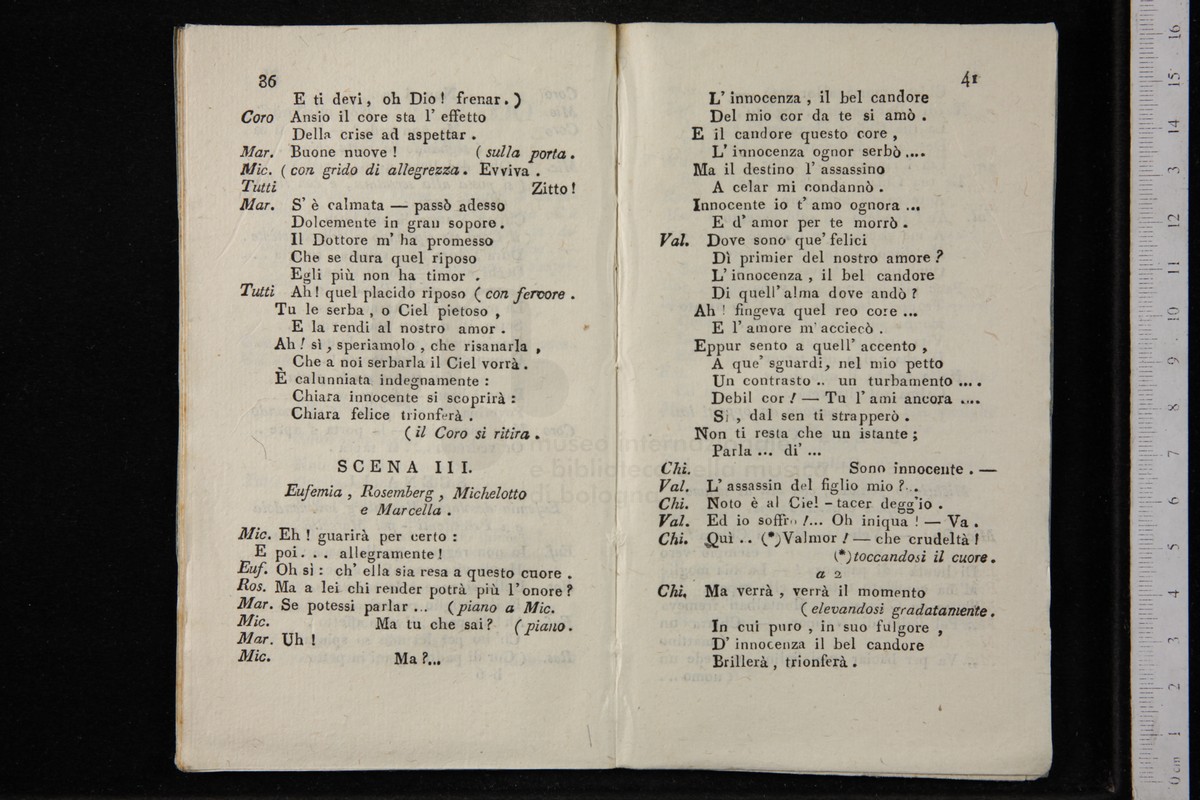 36
E ti devi, oh Dio! frenar.)
Coro Ansio il core sta l' effetto
Della crise ad aspettar.
Mar. Buone nuove! (sulla porta.
Mic. (con grido di allegrezza. Evviva.
Tutti Zitto!
Mar. S' è calmata — passò adesso
Dolcemente in grau sopore.
Il Dottore m' ha promesso
Che se dura quel riposo
Egli più non ha timor.
Tutti Ah! quel placido riposo (con fervore.
Tu le serba, o Ciel pietoso,
E la rendi al nostro amor.
Ah! sì, speriamolo, che risanarla,
Che a noi serbarla il Ciel vorrà.
È calunniata indegnamente:
Chiara innocente si scoprirà:
Chiara felice trionferà.
(il Coro si ritira.
SCENA III.
Eufemia, Rosemberg, Michelotto
e Marcella.
Mic. Eh! guarirà per certo:
E poi. . . allegramente!
Euf. Oh sì: ch' ella sia resa a questo cuore.
Ros. Ma a lei chi render potrà più l'onore?
Mar. Se potessi parlar ... (piano a Mic.
Mic. Ma tu che sai? (piano.
Mar. Uh!
Mic. Ma?...
41
L' innocenza, il bel candore
Del mio cor da te si amò.
E il candore questo core,
L' innocenza ognor serbò....
Ma il destino l' assassino
A celar mi condannò.
Innocente io t' amo ognora ...
E d' amor per te morrò.
Val. Dove sono que' felici
Dì primier del nostro amore?
L' innocenza, il bel candore
Di quell' alma dove andò?
Ah! fingeva quel reo core ...
E l' amore m' acciecò.
Eppur sento a quell' accento,
A que' sguardi, nel mio petto
Un contrasto .. un turbamento ....
Debil cor! — Tu l' ami ancora ....
Sì, dal sen ti strapperò.
Non ti resta che un istante;
Parla ... di' ...
Chi. Sono innocente. —
Val. L' assassin del figlio mio?...
Chi. Noto è al Ciel - tacer degg'io.
Val. Ed io soffro!... Oh iniqua! — Va.
Chi. Quì .. (*)Valmor! — che crudeltà!
(*) toccandosi il cuore.
a 2
Chi. Ma verrà, verrà il momento
(elevandosi gradatamente.
In cui puro, in suo fulgore,
D' innocenza il bel candore
Brillerà, trionferà.
museo internazionale
e biblioteca della musica
di bologna
0 cm 1 2 3 4 5 6 7 8 9 10 11 12 13 14 15 16